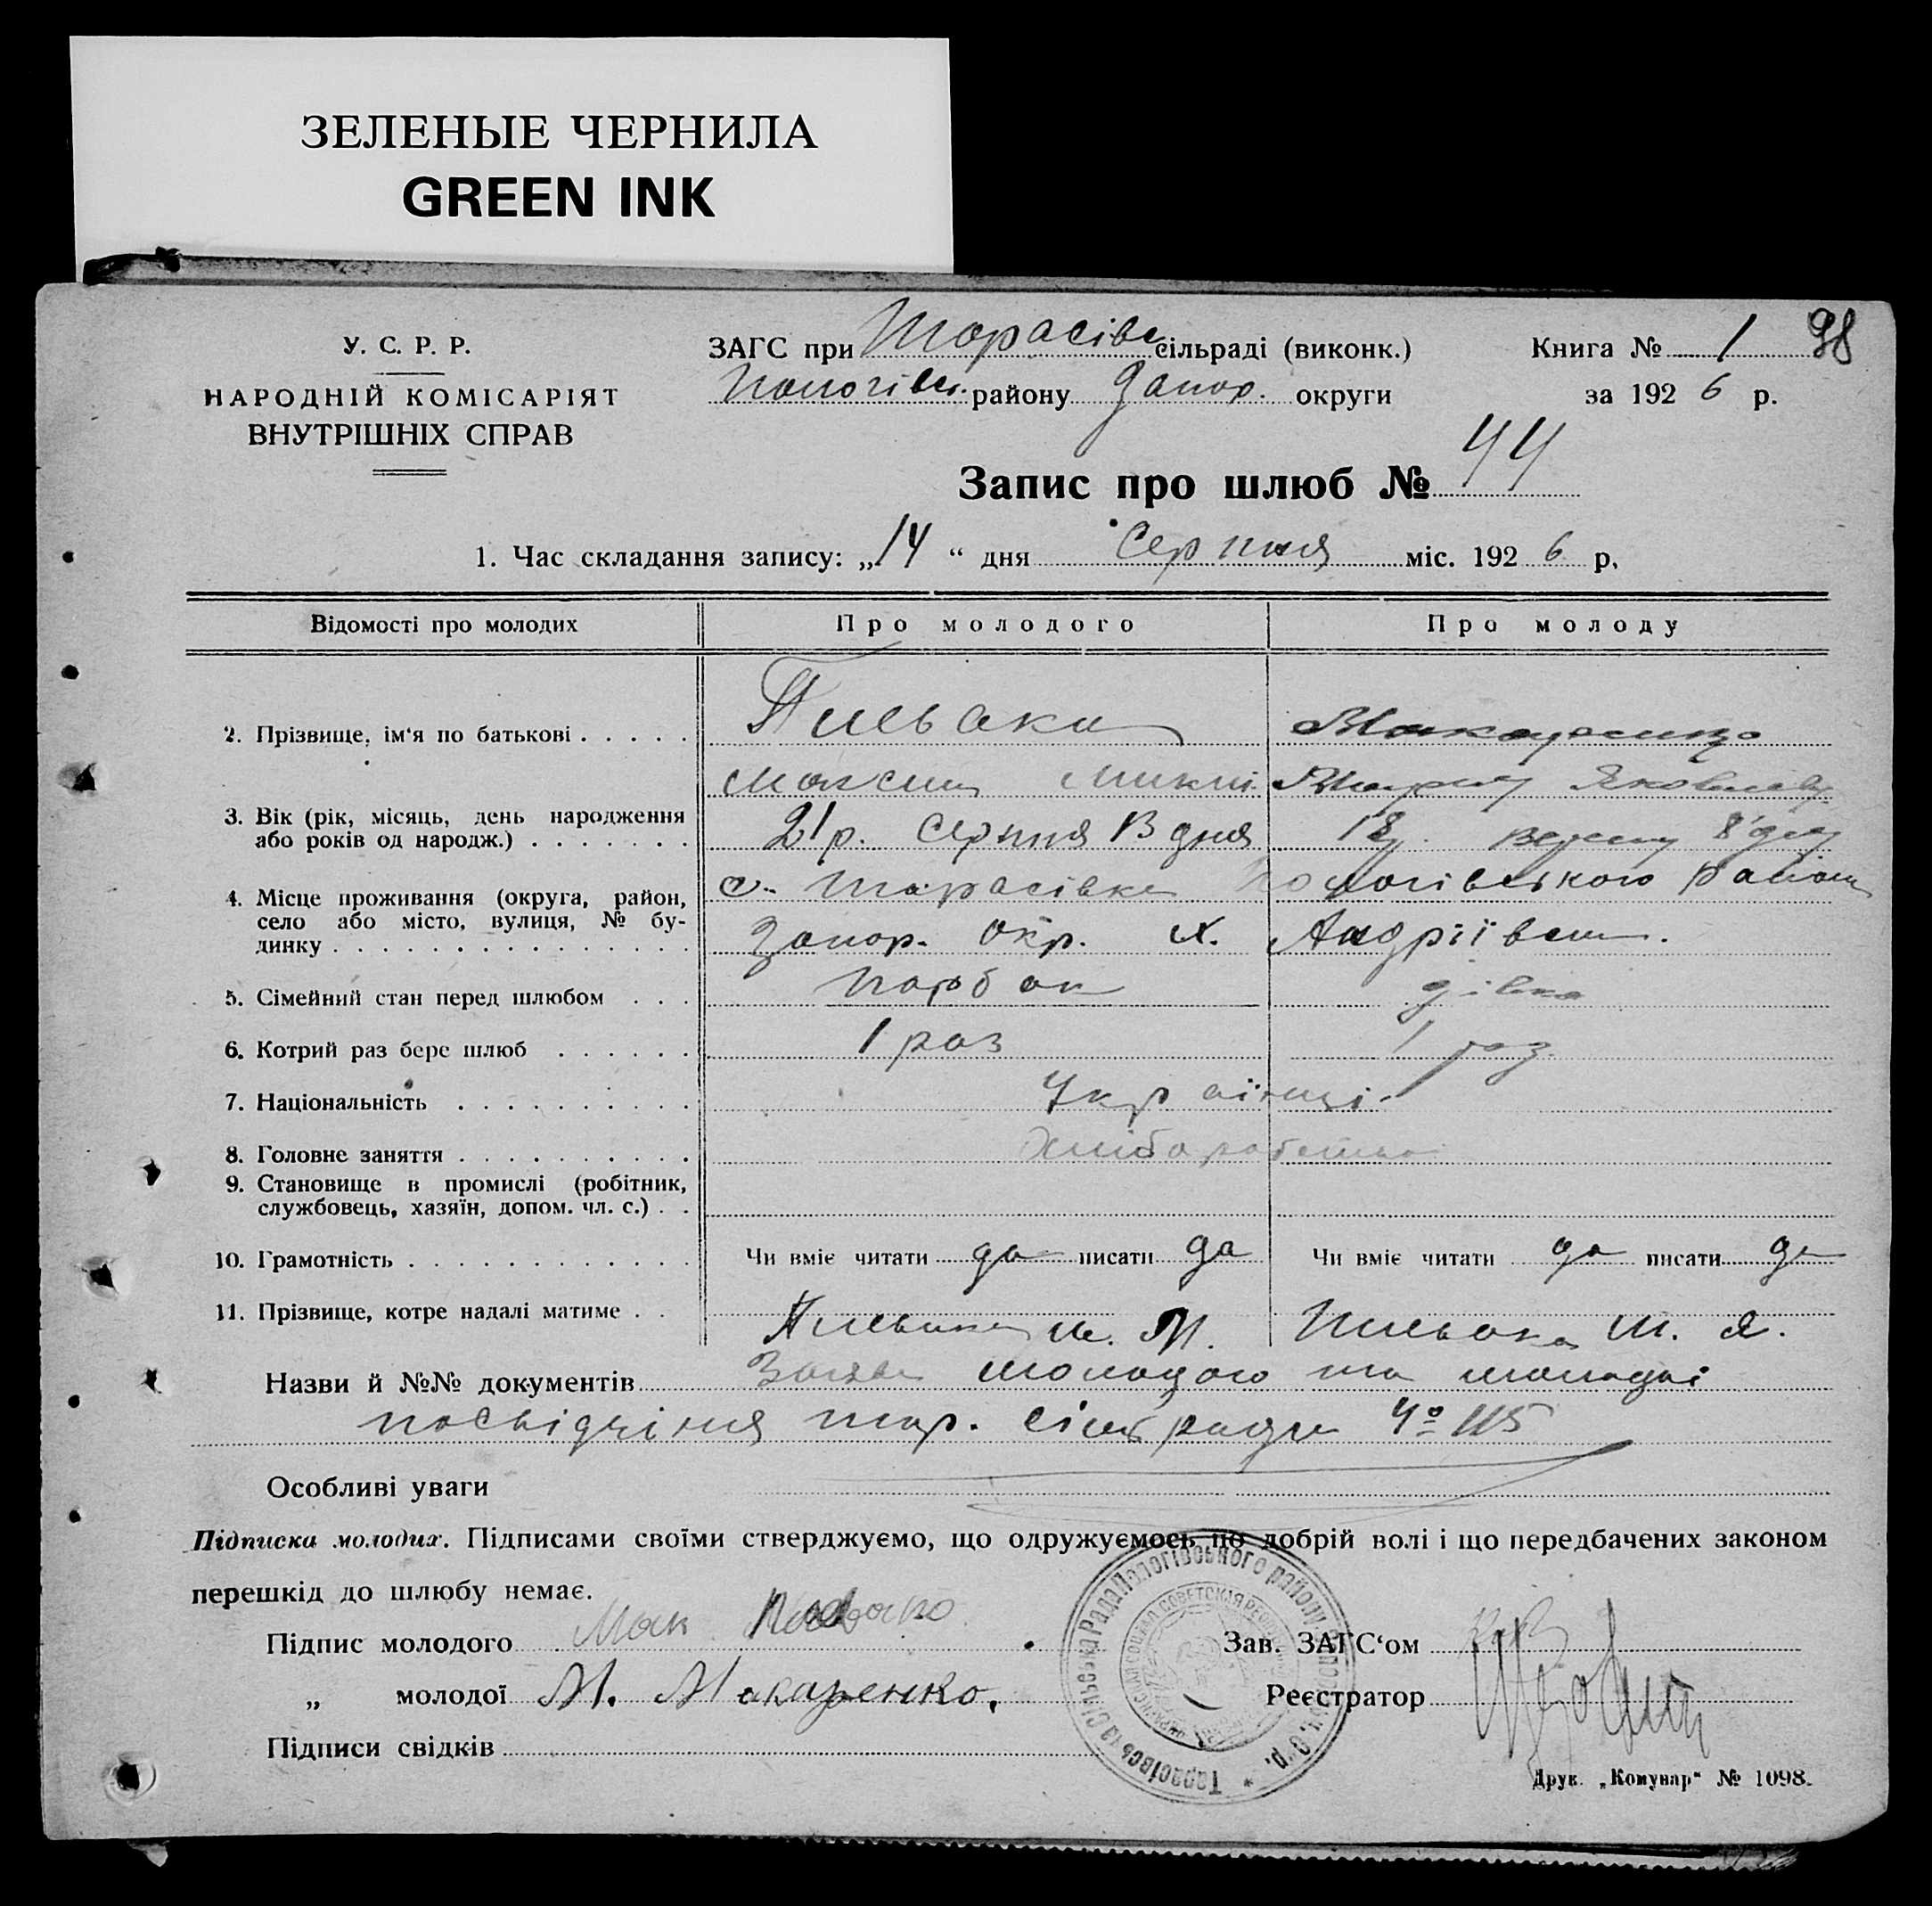 ЗЕЛЕНЫЕ ЧЕРНИЛА
GREEN INK
У. С. Р. Р.
НАРОДНІЙ КОМІСАРІЯТ
ВНУТРІШНІХ СПРАВ
ЗАГС при Тарасівс сільраді (виконк.)
Пологівс. району Запор. округи
Книга № 1 98
за 1926 р.
Запис про шлюб № 44
1. Час складання запису: „14“ дня Серпня міс. 1926 р.
Відомості про молодих Про молодого Про молоду
2. Прізвище, ім‘я по батькові . . . . . Пилвака Макаренко
Максим Микит. Мария Яковлев
3. Вік (рік, місяць, день народження
або років од народж.) . . . . . . . 21 р. Серпня 13 дня 18 8 дня
4. Місце проживання (округа, район,
село або місто, вулиця, № бу-
динку . . . . . . . . . . . . . . .
с. Тарасівка Пологівського району
Запор. окр. х. Андріївськ.
5. Сімейний стан перед шлюбом . . . парубок дівка
6. Котрий раз бере шлюб . . . . . . 1 раз 1 раз.
7. Національність . . . . . . . . . . Українці
8. Головне заняття . . . . . . . . . . Хліборобство
9. Становище в промислі (робітник,
службовець, хазяїн, допом. чл. с.) . .
10. Грамотність . . . . . . . . . . . . Чи вміє читати да писати да Чи вміє читати да писати да
11. Прізвище, котре надалі матиме . . Пилвака М. М. Пилвака М. Я.
Назви й №№ документів Заява молодого та молодої
посвідчіння тар. сільради № 115
Особливі уваги
Підписка молодих. Підписами своїми стверджуємо, що одружуємось по добрій волі і що передбачених законом
перешкід до шлюбу немає.
Підпис молодого Мак
Зав. ЗАГС‘ом
„ молодої М. Макаренко.
Реєстратор
Підписи свідків
Тарасівська Сільська Рада Пологівського району Запорізьк. Окр.
Друк. „Комунар“ № 1098.